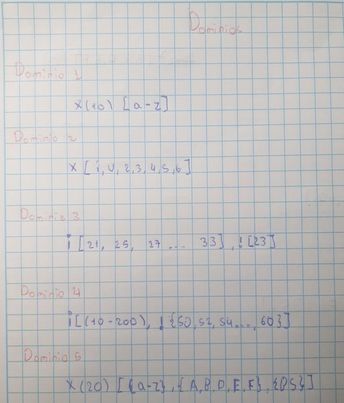 Dominios
Dominio 1
X(10) [a-z]
Dominio 2
X [i, U, 2,3,4,5,6]
Dominio 3
i [21, 25, 27 ... 33], ! [23]
Dominio 4
i[(10-200), ! {50, 52, 54..., 60}]
Dominio 5
X(20) [{a-z}, {A, B, D, E, F}, {DS}]